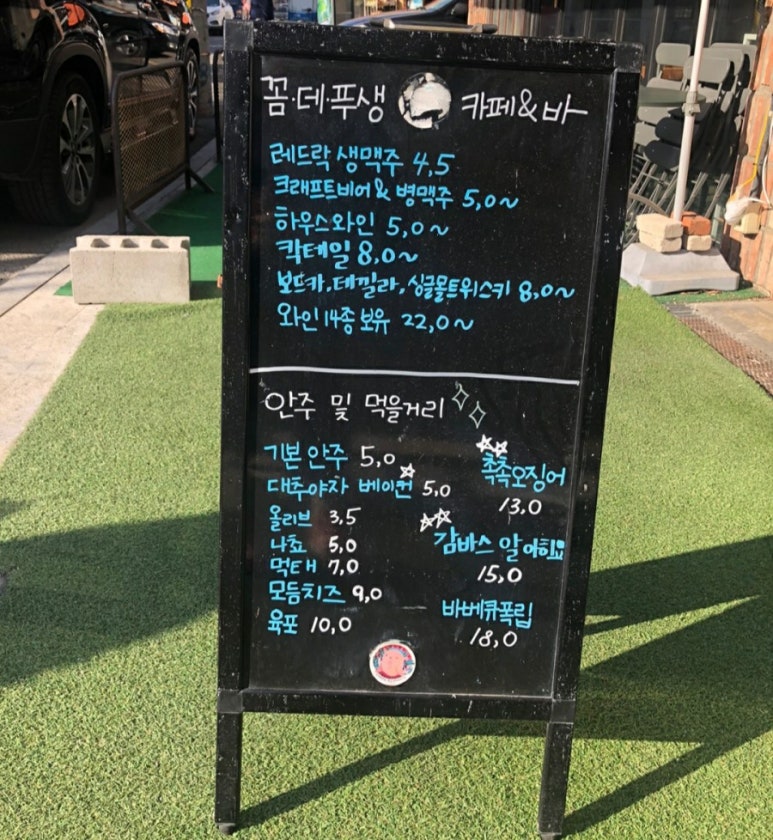 꼼·데·푸생 카페&바
레드락 생맥주 4,5
크래프트비어& 병맥주 5,0~
하우스와인 5,0~
칵테일 8,0~
보드카, 데낄라, 싱글몰트위스키 8,0~
와인 14종 보유 22,0~
안주 및 먹을거리
기본 안주 5,0
대추야자 베이컨 5,0
올리브 3,5
나쵸 5,0
먹태 7,0
모듬치즈 9,0
육포 10,0
촉촉오징어
13,0
감바스 알 아히요
15,0
바베큐폭립
18,0